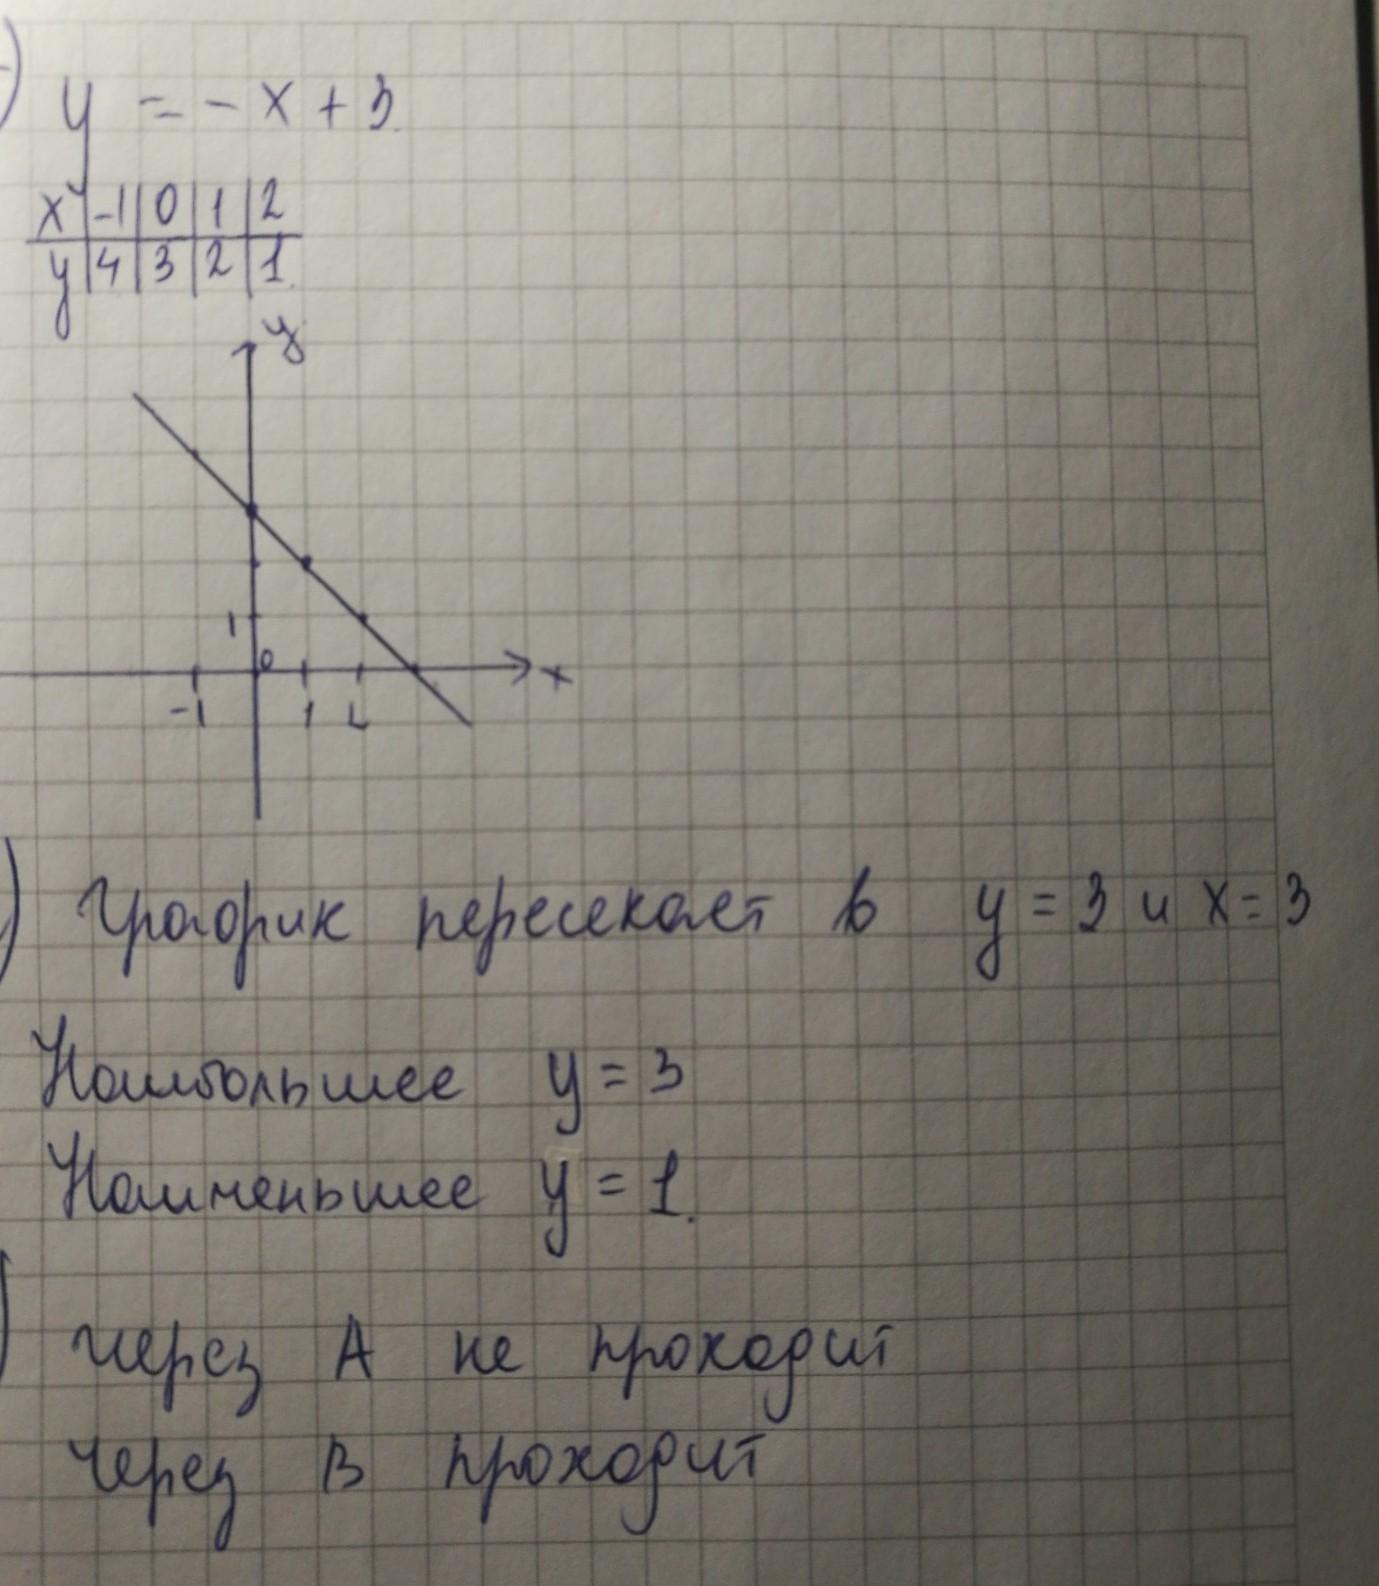 )
y = - x + 3
x -1 0 1 2
y 4 3 2 1
y
1
0
x
-1 1 2
) График пересекает в y = 3 и x = 3
Наибольшее y = 3
Наименьшее y = 1.
) через А не проходит
через В проходит